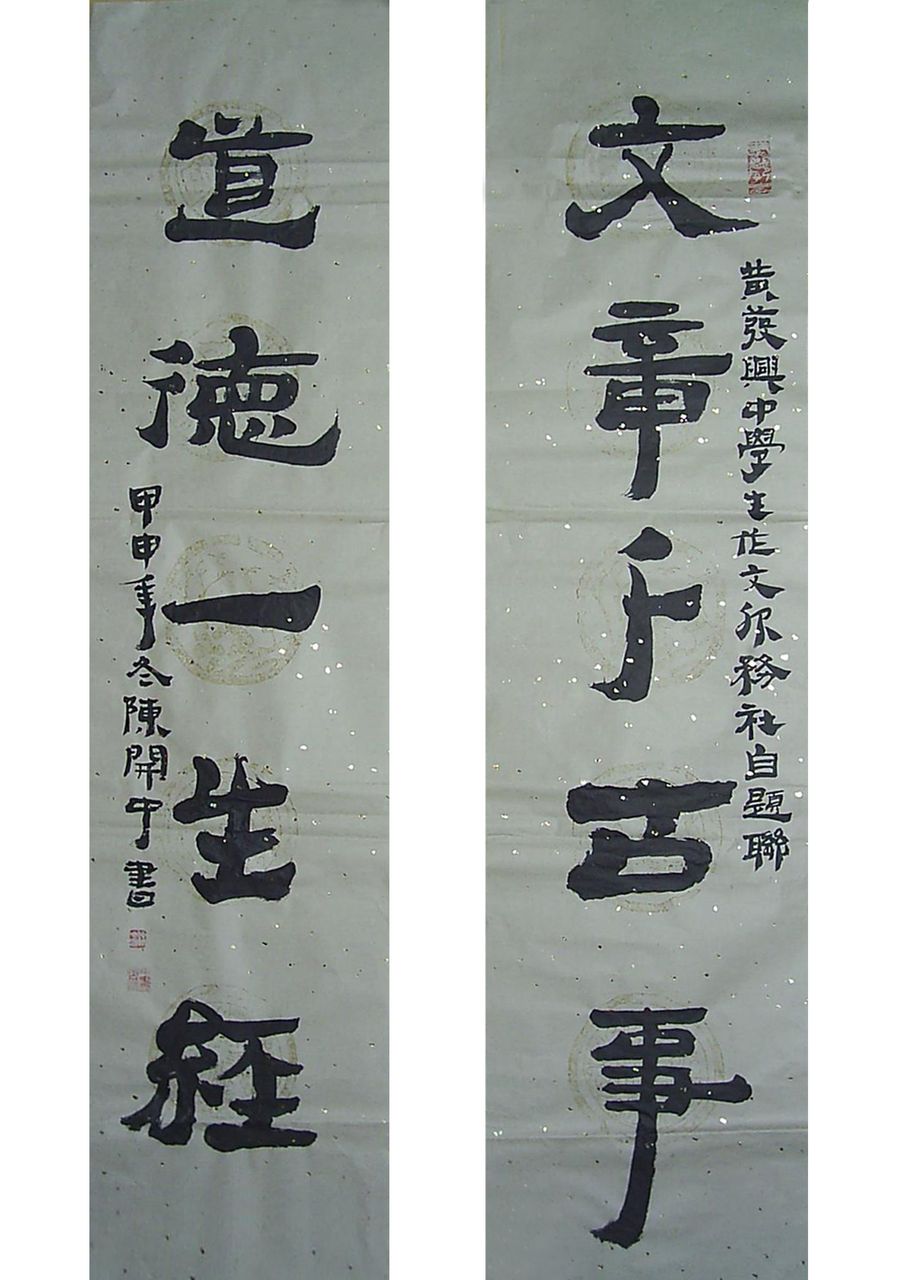 文章千古事
黃發興中學生作文服務社自題聯
道德一生經
甲申年冬陳開中書